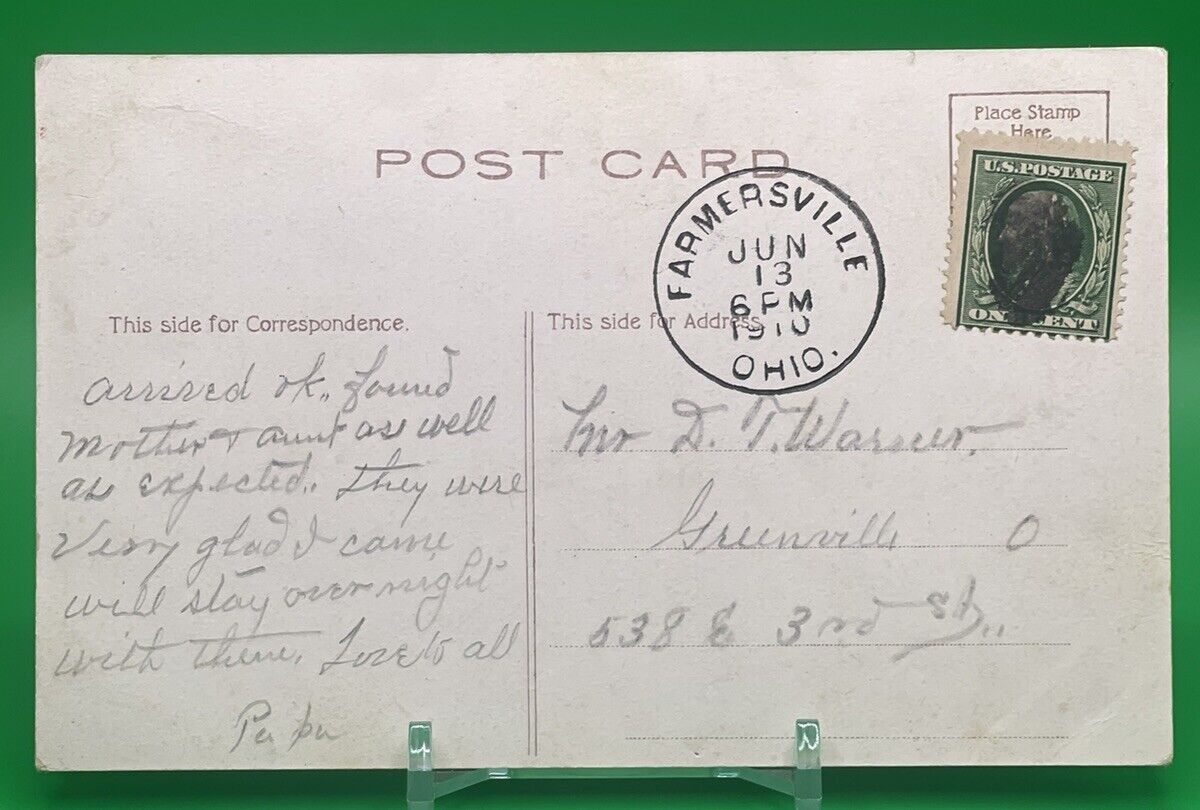 POST CARD
Place Stamp
Here
U.S. POSTAGE
ONE CENT
FARMERSVILLE
JUN
13
6 PM
1910
OHIO.
This side for Correspondence.
arrived ok., found
Mother & aunt as well
as expected. They were
Very glad I came
will stay over night
with them. Love to all
Papa
This side for Address.
Mr D. T. Warner.
Greenville O
538 E 3rd St.,